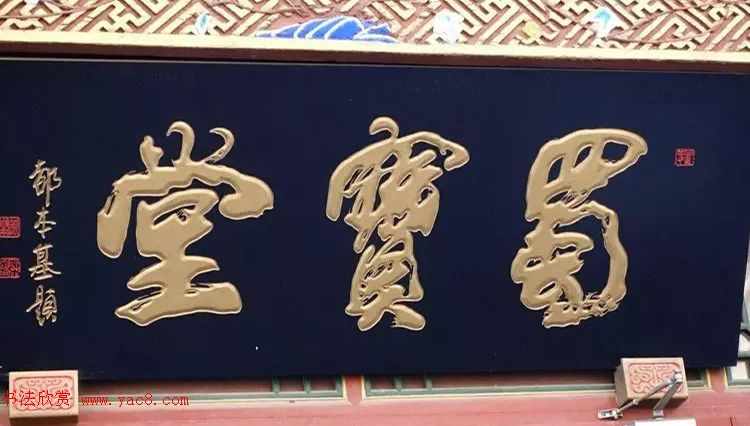 蜀寶堂
都本基題
书法欣赏 www.yac8.com